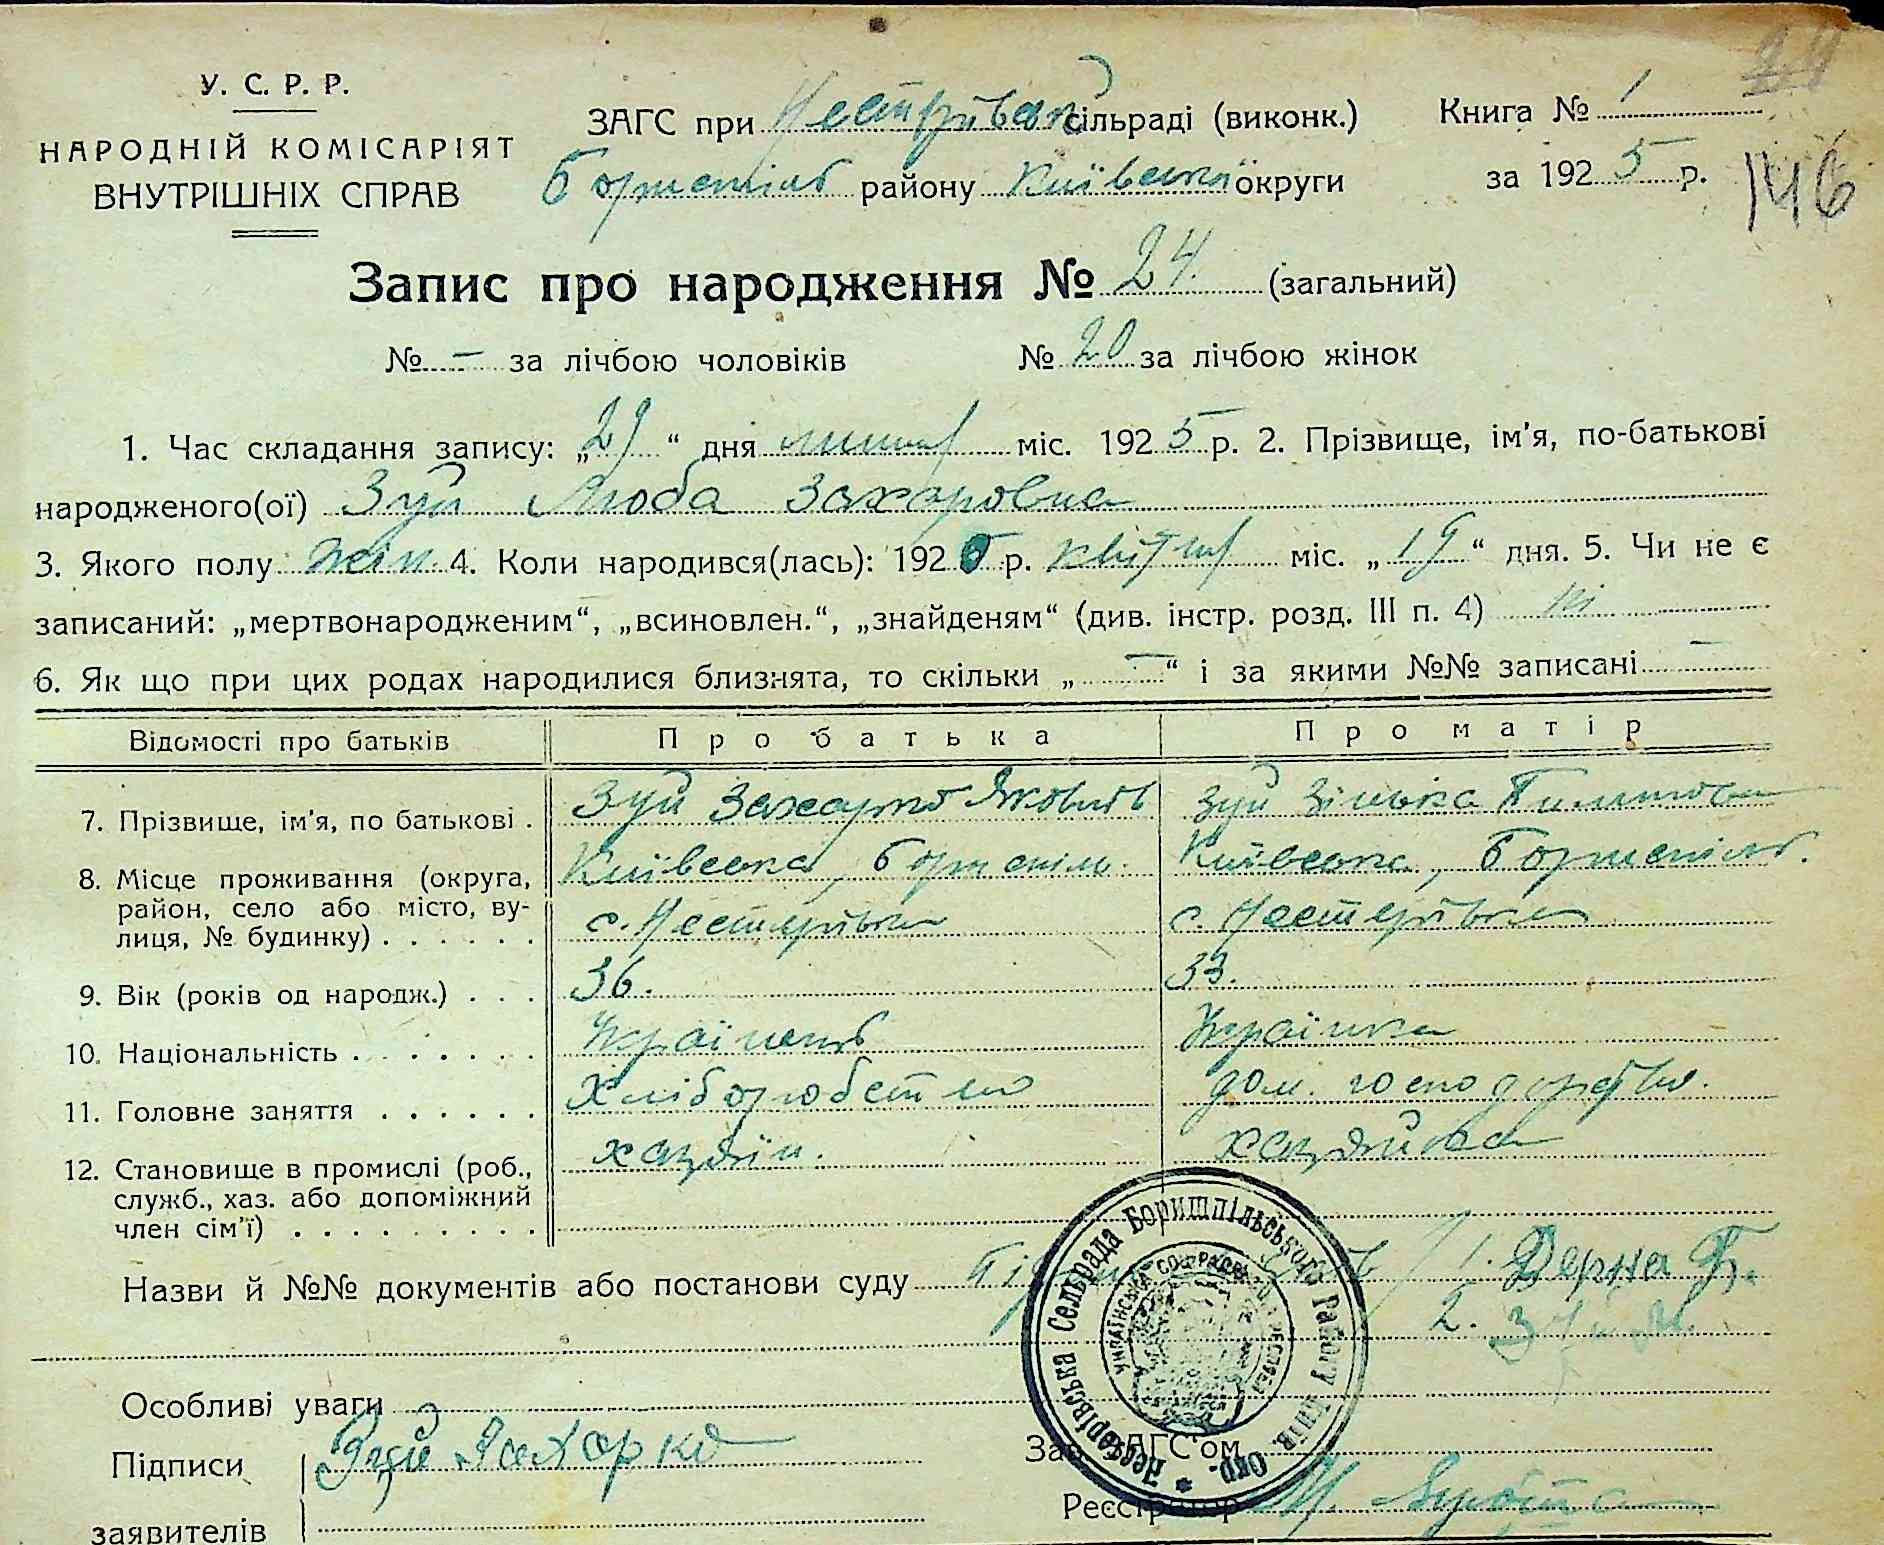 У. С. Р. Р.
НАРОДНІЙ КОМІСАРІЯТ
ВНУТРІШНІХ СПРАВ
ЗАГС при сільраді (виконк.)
району Київської округи
Книга № 1
за 1925 р.
146
Запис про народження № 24 (загальний)
№ – за лічбою чоловіків № 20 за лічбою жінок
1. Час складання запису: „29“ дня міс. 1925 р. 2. Прізвище, ім'я, по-батькові
народженого(ої) Зуй Люба Захаровна
3. Якого полу жін 4. Коли народився(лась): 192 р. квітня міс. „19“ дня. 5. Чи не є
записаний: „мертвонародженим“, „всиновлен.“, „знайденям“ (див. інстр. розд. III п. 4) ні
6. Як що при цих родах народилися близнята, то скільки „–“ і за якими №№ записані –
Відомості про батьків Про батька Про матір
7. Прізвище, ім'я, по батькові . Зуй Захарко Яковлів Зуй Зінька
8. Місце проживання (округа, Київська, Київська,
район, село або місто, ву- с. с.
лиця, № будинку) . . . . . .
9. Вік (років од народж.) . . . 36. 33.
10. Національність . . . . . . . Українець Українка
11. Головне заняття . . . . . . Хліборобство дом. господарство.
12. Становище в промислі (роб., хазяїн. хазяйка
служб., хаз. або допоміжний
член сім'ї) . . . . . . . . .
Назви й №№ документів або постанови суду 1. Дерна Г.
2. Зуй М.
Особливі уваги
Підписи Зуй Захарко
заявителів
Зав. ЗАГС'ом
Реєстратор М.
Сельрада Боришпільського Району Київ. Окр.